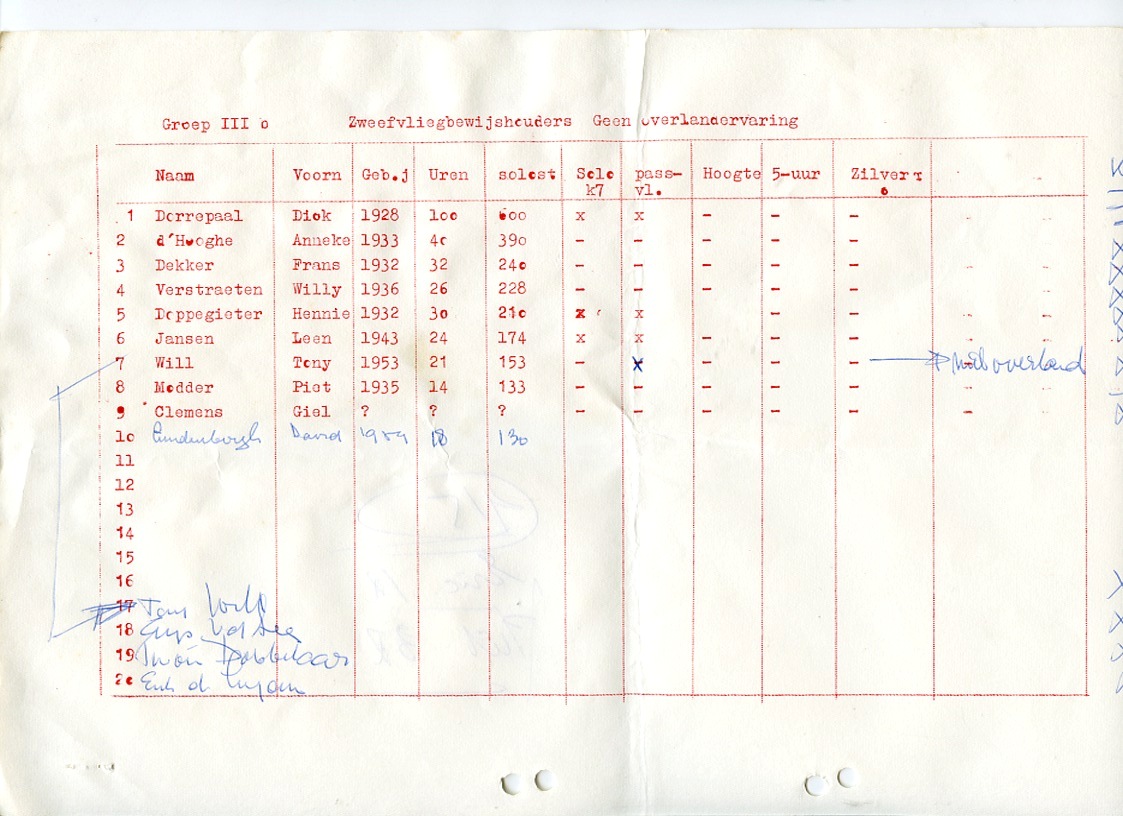 Groep III b Zweefvliegbewijshouders Geen overlandervaring
Naam Voorn Geb.j Uren solost Solo pass- Hoogte 5-uur Zilver
k7 vl.
1 Dorrepaal Dick 1928 1oo 600 x x - - -
2 d'Hooghe Anneke 1933 4o 39o - - - - -
3 Dekker Frans 1932 32 24o - - - - - - -
4 Verstraeten Willy 1936 26 228 - - - - - - -
5 Doppegieter Hennie 1932 3o 21o x x - - - -
6 Jansen Leen 1943 24 174 x x - - - - -
7 Will Tony 1953 21 153 - x - - - overland
8 Modder Piet 1935 14 133 - - - - - - -
9 Clemens Giel ? ? ? - - - - - -
1o David 1959 18 130
11
12
13
14
15
16
17 Tony Will
18
19 Dobbelaar
2o